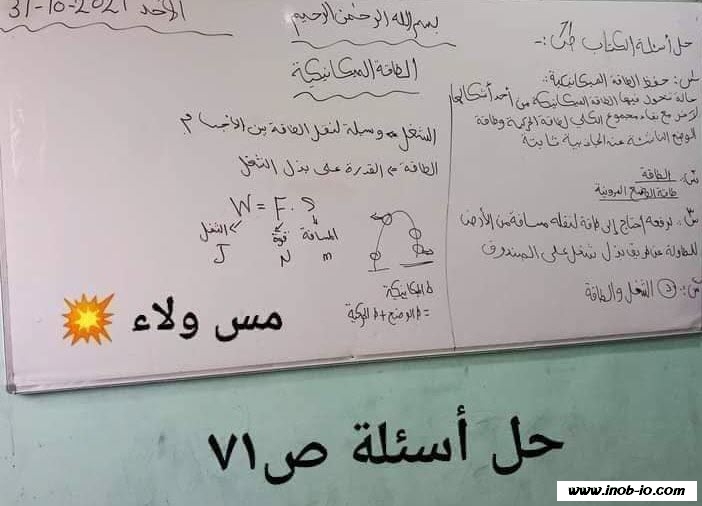 الأحد 31-10-2021
بسم الله الرحمن الرحيم
الطاقة الميكانيكية
الشغل وسيلة لنقل الطاقة بين الأجسام
الطاقة القدرة على بذل الشغل
W = F . S
الشغل قوة المسافة
J N m
ط ميكانيكية
= ط الوضع + ط الحركية
حل أسئلة الكتاب ص ٧١ :-
حفظ الطاقة الميكانيكية:
حالة تتحول فيها الطاقة الميكانيكية من أحد أشكالها
لآخر مع بقاء مجموع الكلي لطاقة الحركية وطاقة
الوضع الناشئة عن الجاذبية ثابتة
الطاقة
طاقة الوضع المرونية
لرفعه أحتاج إلى طاقة لنقله مسافة من الأرض
للطاولة عن طريق بذل شغل على الصندوق
الشغل والطاقة
مس ولاء
حل أسئلة ص٧١
www.inob-io.com